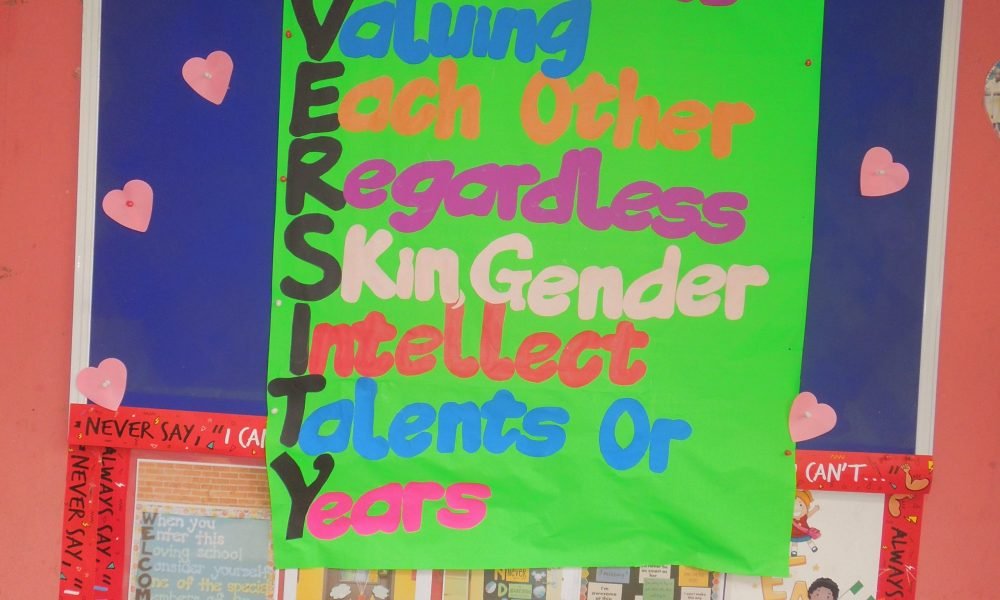 Valuing
Each Other
Regardless
Skin, Gender
Intellect
Talents Or
Years
NEVER SAY, "I CAN
CAN'T..."
ALWAYS SAY, "
NEVER SAY, "
ALWAYS
When you
Enter this
Loving school
Consider yourself
One of the special
WELCOM